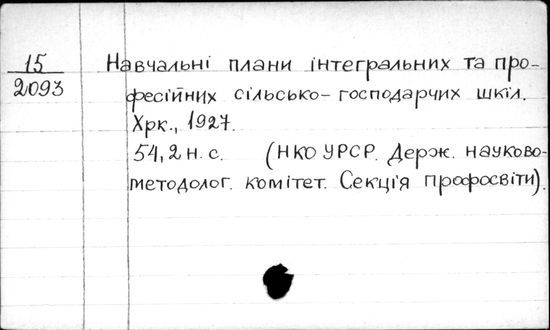 15
2093
Навчальні плани інтегральних та про-
фесійних сільсько-господарчих шкіл.
Хрк., 1927.
54, 2 н. с. (НКО УРСР. Держ. науково-
методолог. комітет. Секція профосвіти).